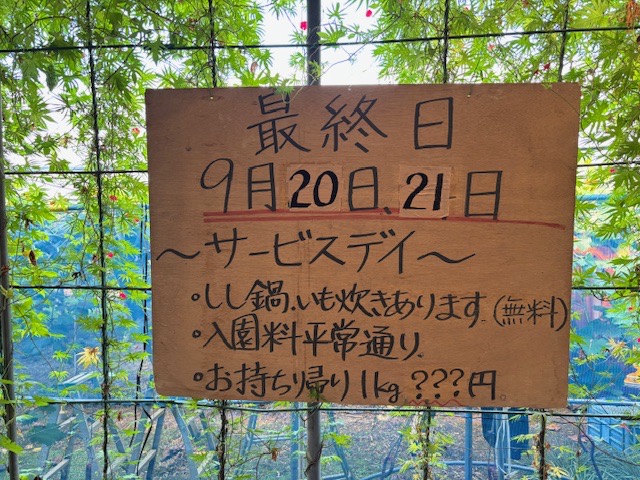 最終日
9月20日、21日
～サービスデイ～
・しし鍋、いも炊きあります。(無料)
・入園料平常通り。
・お持ち帰り1kg ???円。